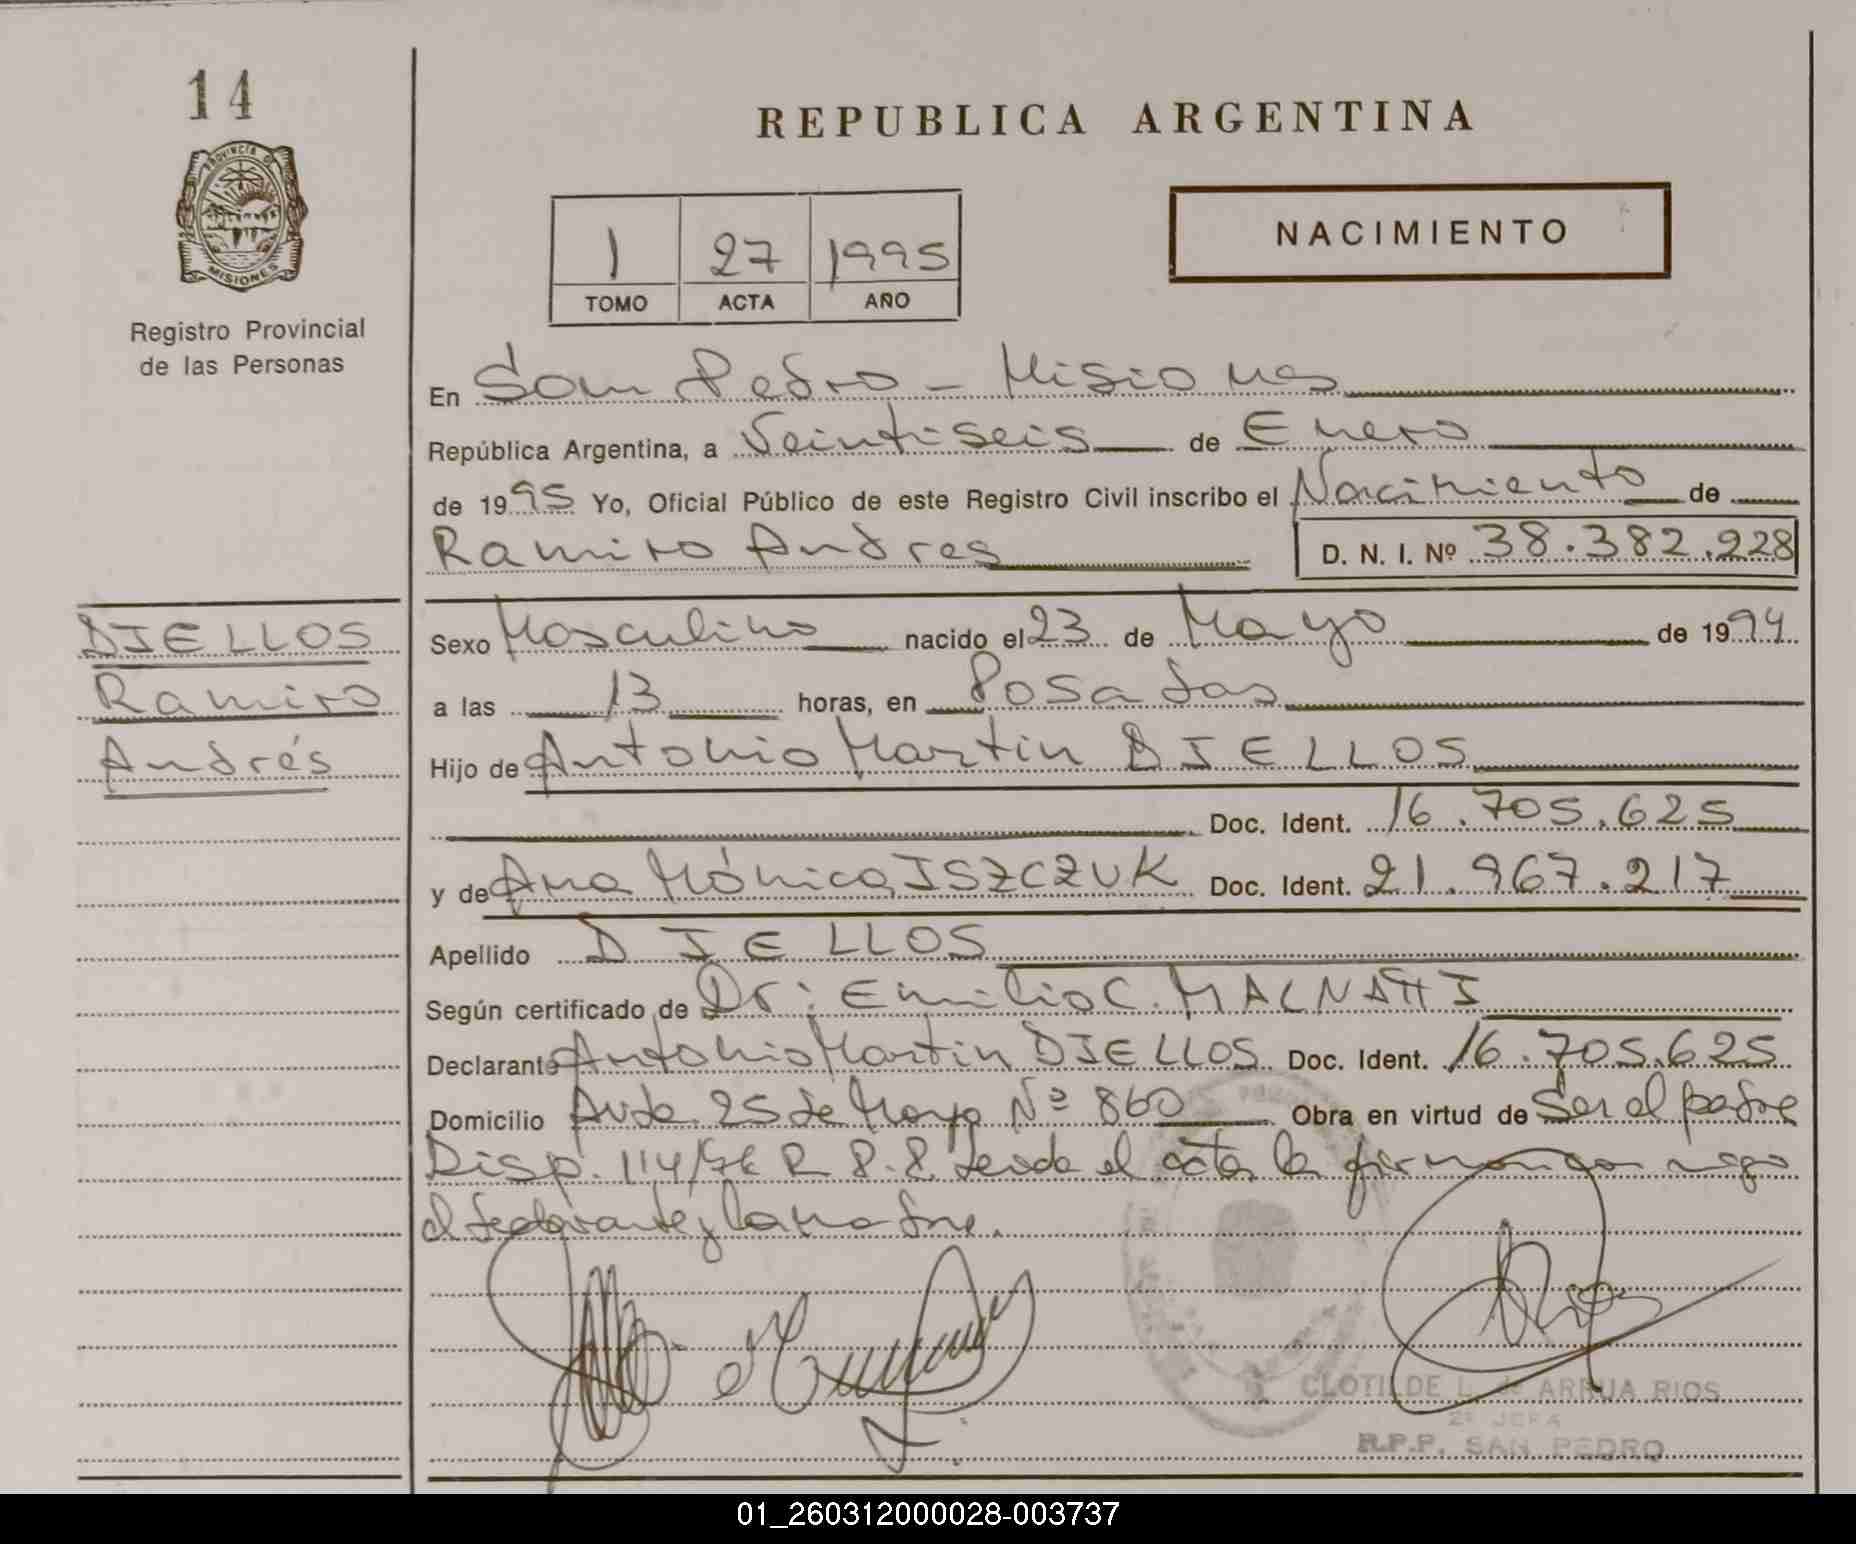 14
REPUBLICA ARGENTINA
PROVINCIA DE
MISIONES
Registro Provincial
de las Personas
NACIMIENTO
1 27 1995
TOMO ACTA AÑO
En San Pedro - Misiones
República Argentina, a Veintiseis de Enero
de 1995 Yo, Oficial Público de este Registro Civil inscribo el Nacimiento de
Ramiro Andres D. N. I. Nº 38.382.228
DIELLOS
Ramiro
Andrés
Sexo Masculino nacido el 23 de Mayo de 1994
a las 13 horas, en Posadas
Hijo de Antonio Martin DIELLOS
Doc. Ident. 16.705.625
y de Ana Mónica ISZCZUK Doc. Ident. 21.967.217
Apellido DIELLOS
Según certificado de Dr: Emilio C. MALNATTI
Declarante Antonio Martin DIELLOS Doc. Ident. 16.705.625
Domicilio Avda. 25 de Mayo Nº 860 Obra en virtud de Ser el padre
Disp. 114/ R.P.P. Leida el acta la firman
el declarante y la madre.
CLOTILDE L. de ARRUA RIOS
2ª JEFA
R.P.P. SAN PEDRO
01_260312000028-003737